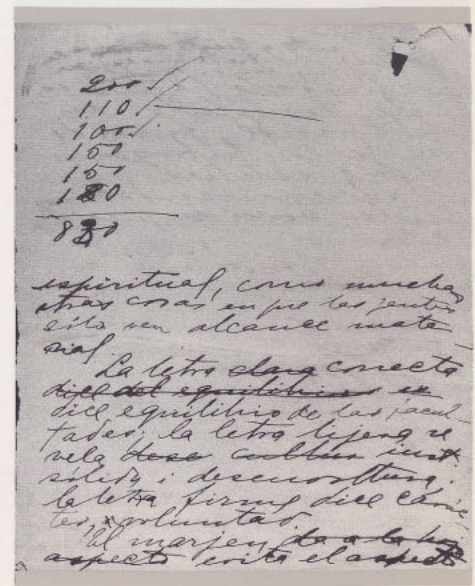 200
110
100
150
150
120
830
espiritual, como muchas
otras cosas en que las jentes
sólo ven alcance mate
rial.
La letra clara correcta
dice del equilibrio en
dice equilibrio de las facul-
tades; la letra lijera re
vela inst.
sólida i desenvoltura;
la letra firme dice carác
ter, voluntad.
El marjen da a la hoja
aspecto evita el aspecto